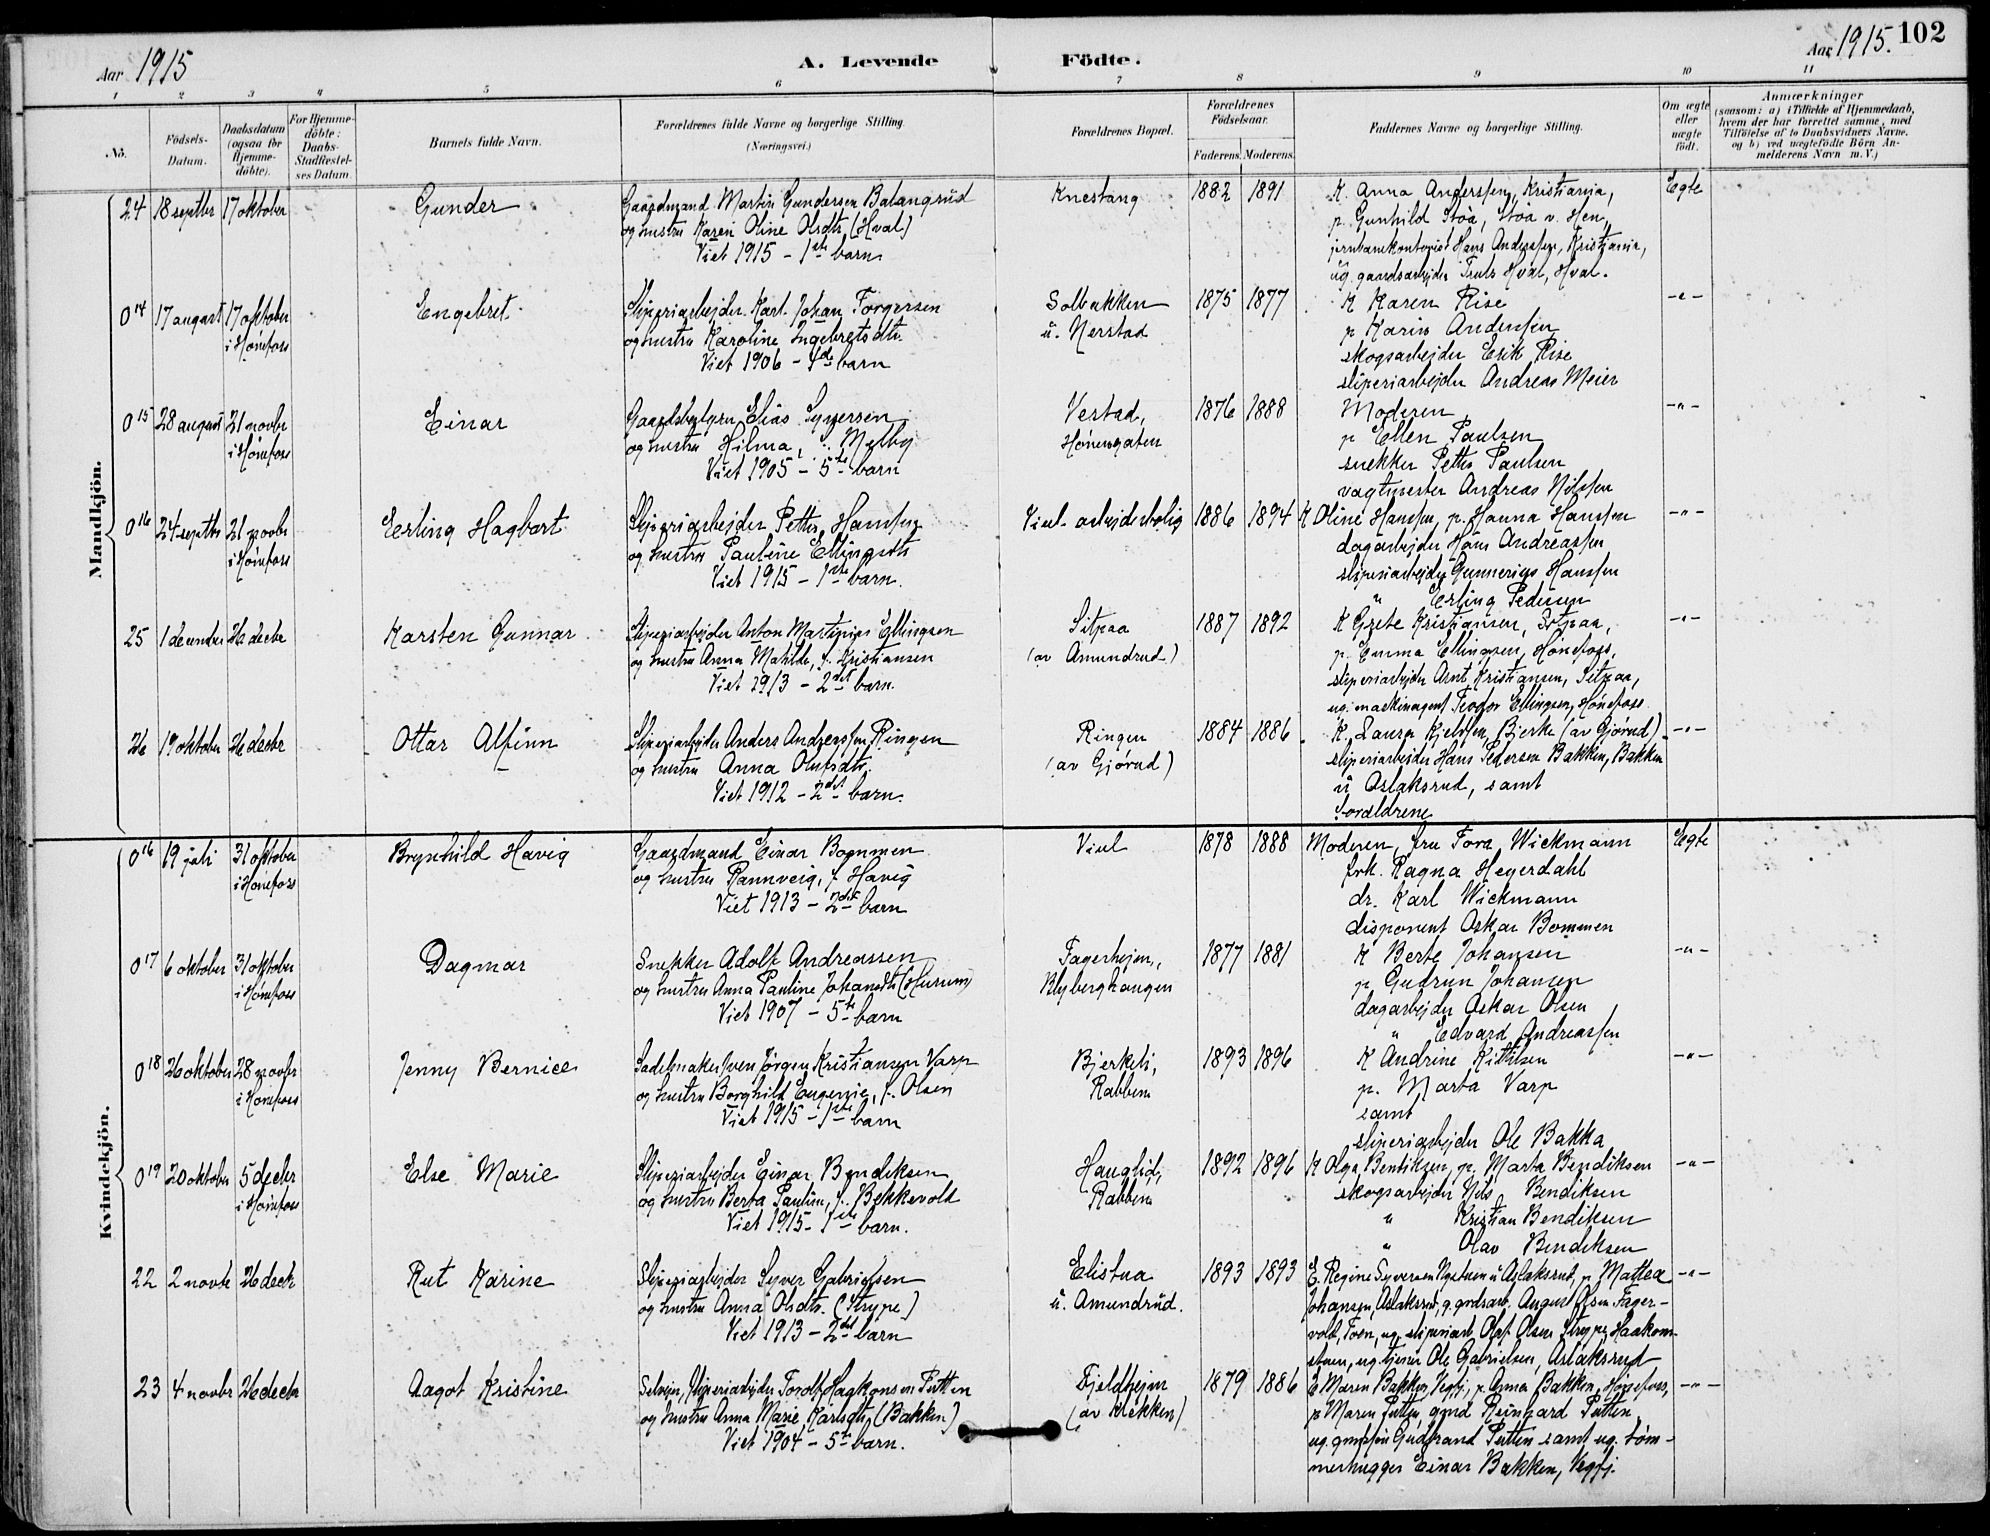 Aar 1915
A. Levende Födte.
Aar 1915. 102
1 2 3 4 5 6 7 8 9 10 11
No.
Födsels-Datum.
Daabsdatum (ogsaa for Hjemme-döbte).
For Hjemme-döbte: Daabs-Stadfæstel-ses Datum.
Barnets fulde Navn.
Forældrenes fulde Navne og borgerlige Stilling. (Næringsvei.)
Forældrenes Bopæl.
Forældrenes Födselsaar.
Faderens. Moderens.
Faddernes Navne og borgerlige Stilling.
Om ægte eller uægte födt.
Anmærkninger
(saasom: a) i Tilfælde af Hjemmedaab,
hvem der har forrettet samme, med
Tilföielse af to Daabsvidners Navne,
og b) ved uægtefödte Börn An-
melderens Navn m. V.)
Mandkjön.
24 18 septbr 17 oktober Gunder
Gaardmand Martin Gundersen Balangrud
og hustru Karen Oline Olsdtr. (Hval)
Viet 1915 - 1ste barn
Knestang 1882 1891
K. Anna Anderssen, Kristiania,
p. Gunhild Støa, Støa v. Hen,
jernbanekontorist Hans Anderssen, Kristiania,
ug. gaardsarbejder Truls Hval, Hval.
Egte
014 17 august 17 oktober i Hønefoss Engebret
Sliperiarbejder Karl Johan Torgersen
og hustru Karoline Ingebretsdtr.
Viet 1906 - 4de barn
Solbakken u. Nerstad 1875 1877
K Karen Rise
p Karin Anderssen
skogsarbejder Erik Rise
sliperiarbejder Andreas Meier
-"-
015 28 august 21 novbr i Hønefoss Einar
Gaardsbestyrer Elias Syversen
og hustru Hilma, f. Melby
Viet 1905 - 5te barn
Vestad, Hønengaten 1876 1888
Moderen
p Ellen Paulsen
snekker Petter Paulsen
vagtmester Andreas Nilssen
-"-
016 24 septbr 21 novbr i Hønefoss Erling Hagbart
Sliperiarbejder Petter Hanssen
og hustru Pauline Ellingsdtr
Viet 1915 - 1ste barn.
Viul arbejderbolig 1886 1894
K Oline Hanssen, p. Hanna Hanssen
dagarbejder Hans Andreassen
sliperiarbejder Gunnerius Hanssen
" Erling Pedersen
-"-
25 1 december 26 decbr Karsten Gunnar
Sliperiarbejder Anton Martinius Ellingsen
og hustru Anna Matilde, f. Kristiansen
Viet 1913 - 2det barn.
Sitpaa (av Amundrud) 1887 1892
K Grete Kristiansen, Sitpaa,
p. Emma Ellingsen, Hønefoss,
sliperiarbejder Arnt Kristiansen, Sitpaa,
ug. maskinagent Teodor Ellingsen, Hønefoss
-"-
26 19 oktober 26 decbr Ottar Alfinn
Sliperiarbejder Anders Anderssen Ringen
og hustru Anna Olufsdtr.
Viet 1912 - 2det barn.
Ringen (av Gjørud) 1884 1886
K. Laura Kjelssen, Bjerke (av Gjørud)
sliperiarbejder Hans Pedersen Bakken, Bakken
u Oslaksrud, samt
forældrene
-"-
Kvindekjön.
016 19 juli 31 oktober i Hønefoss Brynhild Havig
Gaardmand Einar Bommen
og hustru Rannveig, f. Havig
Viet 1913 - 2det barn
Viul 1878 1888
Moderen, fru Tora Wickmann
frk. Ragna Heyerdahl
dr. Karl Wickmann
disponent Oskar Bommen
Egte
017 6 oktober 31 oktober i Hønefoss Dagmar
Snekker Adolf Andreassen
og hustru Anna Pauline Johansdtr (Hurum)
Viet 1907 - 5te barn
Fagerhejm, Blyberghaugen 1877 1881
K Berte Johansen
p Gudrun Johansen
dagarbejder Oskar Olsen
" Edvard Andreassen
-"-
018 26 oktober 28 novbr i Hønefoss Jenny Bernice
Sadelmaker Iven Jørgen Kristiansen Varp
og hustru Borghild Eugenie, f. Olsen
Viet 1915 - 1ste barn
Bjerkeli, Rabben 1893 1896
K Andrine Kittilsen
p. Marta Varp
samt
sliperiarbejder Ole Bakka
-"-
019 20 oktober 5 decbr i Hønefoss Else Marie
Sliperiarbejder Einar Bendiksen
og hustru Berta Pauline, f. Bekkevold
Viet 1915 - 1ste barn.
Hauglid, Rabben 1892 1896
K Olga Bentiksen, p. Marta Bendiksen
skogsarbejder Nils Bendiksen
" Kristian Bendiksen
" Olav Bendiksen
-"-
22 2 novbr 26 decbr Rut Karine
Sliperiarbejder Syver Gabrielsen
og hustru Anna Olsdtr. (Strype)
Viet 1913 - 2det barn
Elistua u. Amundrud. 1893 1893
E. Regine Syversen Nystuen u Aslaksrud, p Mattea
Johansen, Aslaksrud, g. gardsarb. August Olsen Fager-
vold, Toen, ug. sliperiarb. Olaf Olsen Strype, Haakon-
stuen, ug. tjener Ole Gabrielsen, Aslaksrud
-"-
23 4 novbr 26 decbr Aagot Kristine
Selvejer, sliperiarbejder Torolf Haakonsen Putten
og hustru Anna Marie Karlsdtr. (Bakken)
Viet 1904 - 5te barn.
Fjeldhejm (av Klekken) 1879 1886
E Maren Bakken, Vegfj., p. Anna Bakken, Hønefoss,
p Maren Putten, gmd Reinhard Putten,
ug. Gudbrand Putten samt ug. tøm-
merhugger Einar Bakken, Vegfj.
-"-